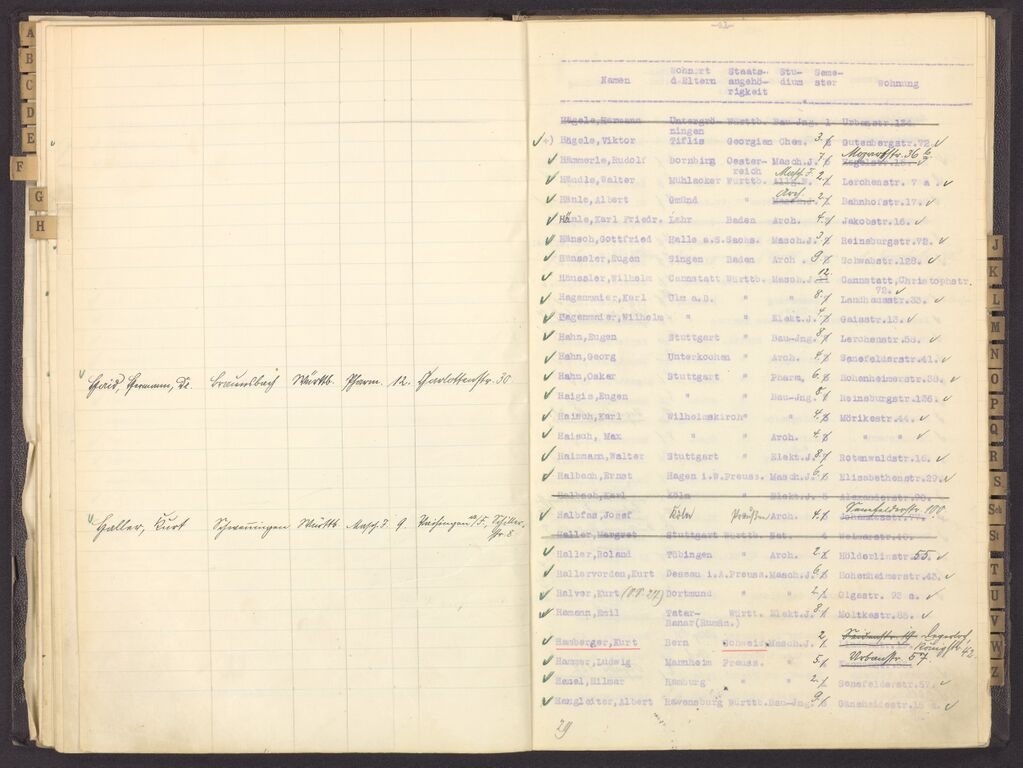 A
B
C
D
E
F
G
H
Haid, Hermann, Dr. Braunsbach Württb. Pharm. 12. Charlottenstr. 30
Haller, Kurt Schwenningen Württb. Masch.J. 9. Vaihingen a/F, Schiller-
str. 8
-21-
Namen Wohnort d.Eltern Staats-angehö-rigkeit Stu-dium Seme-ster Wohnung
Hägele,Hermann Untergrö-ningen Württb. Bau-Jng. 1 Urbanstr.134.
+) Hägele,Viktor Tiflis Georgien Chem. 3. Gutenbergstr.72.
Hämmerle,Rudolf Dornbirg Oester-reich Masch.J. 7. Mozartstr. 36
Händle,Walter Mühlacker Württb. Masch.J. 2. Lerchenstr. 7 a .
Hänle, Albert Gmünd " Arch. 2. Bahnhofstr.17.
Hänle, Karl Friedr. Lahr Baden Arch. 4. Jakobstr.16.
Hänsch,Gottfried Halle a.S.Sachs. Masch.J. 3. Reinsburgstr.72.
Hänssler,Eugen Singen Baden Arch . 9. Schwabstr.128.
Häussler,Wilhelm Cannstatt Württb. Masch.J. 12. Cannstatt,Christophstr.
72.
Hagenmaier,Karl Ulm a.D. " " 8. Landhausstr.33.
Hagenmaier,Wilhelm " " Elekt.J. 4. Gaisstr.13.
Hahn,Eugen Stuttgart " Bau-Jng. 8. Lerchenstr.58.
Hahn,Georg Unterkochen " Arch. 4. Senefelderstr.41.
Hahn,Oskar Stuttgart " Pharm. 6. Hohenheimerstr.38.
Haigis,Eugen " " Bau-Jng. 8. Reinsburgstr.136.
Haisch,Karl Wilhelmskirch " " 4. Mörikestr.44.
Haisch, Max " " Arch. 4. " "
Haimann,Walter Stuttgart " Elekt.J. 8. Rotenwaldstr.16.
Halbach,Ernst Hagen i.W.Preuss. Masch.J. 6. Elisabethenstr.29.
Halbach,Karl Köln " Elekt.J. 5 Alexanderstr.98.
Halbfas,Josef Köln Preußen Arch. 4. Senefelderstr. 100.
Haller,Margret Stuttgart Württb. Nat. 4
Haller,Roland Tübingen " Arch. 2. Hölderlinstr.55.
Hallervorden,Kurt Dessau i.A.Preuss.Masch.J. 6. Hohenheimerstr.43.
Halver,Kurt Dortmund " " 2. Olgastr. 93 a.
Hamann,Emil Tatar-Hanar(Rumän.) Württ. Elekt.J. 8. Moltkestr.85.
Hamberger,Kurt Bern Schweiz.Masch.J. 2. Degerloch,
Königstr. 42.
Hammer,Ludwig Mannheim Preuss. " 5. Urbanstr. 57.
Hanel,Hilmar Hamburg " " 2. Senefelderstr.57.
Hangleiter,Albert Ravensburg Württb.Bau-Jng. 9. Gänsheidestr.15 a.
29
J
K
L
M
N
O
P
Q
R
S
Sch
St
T
U
V
W
Z